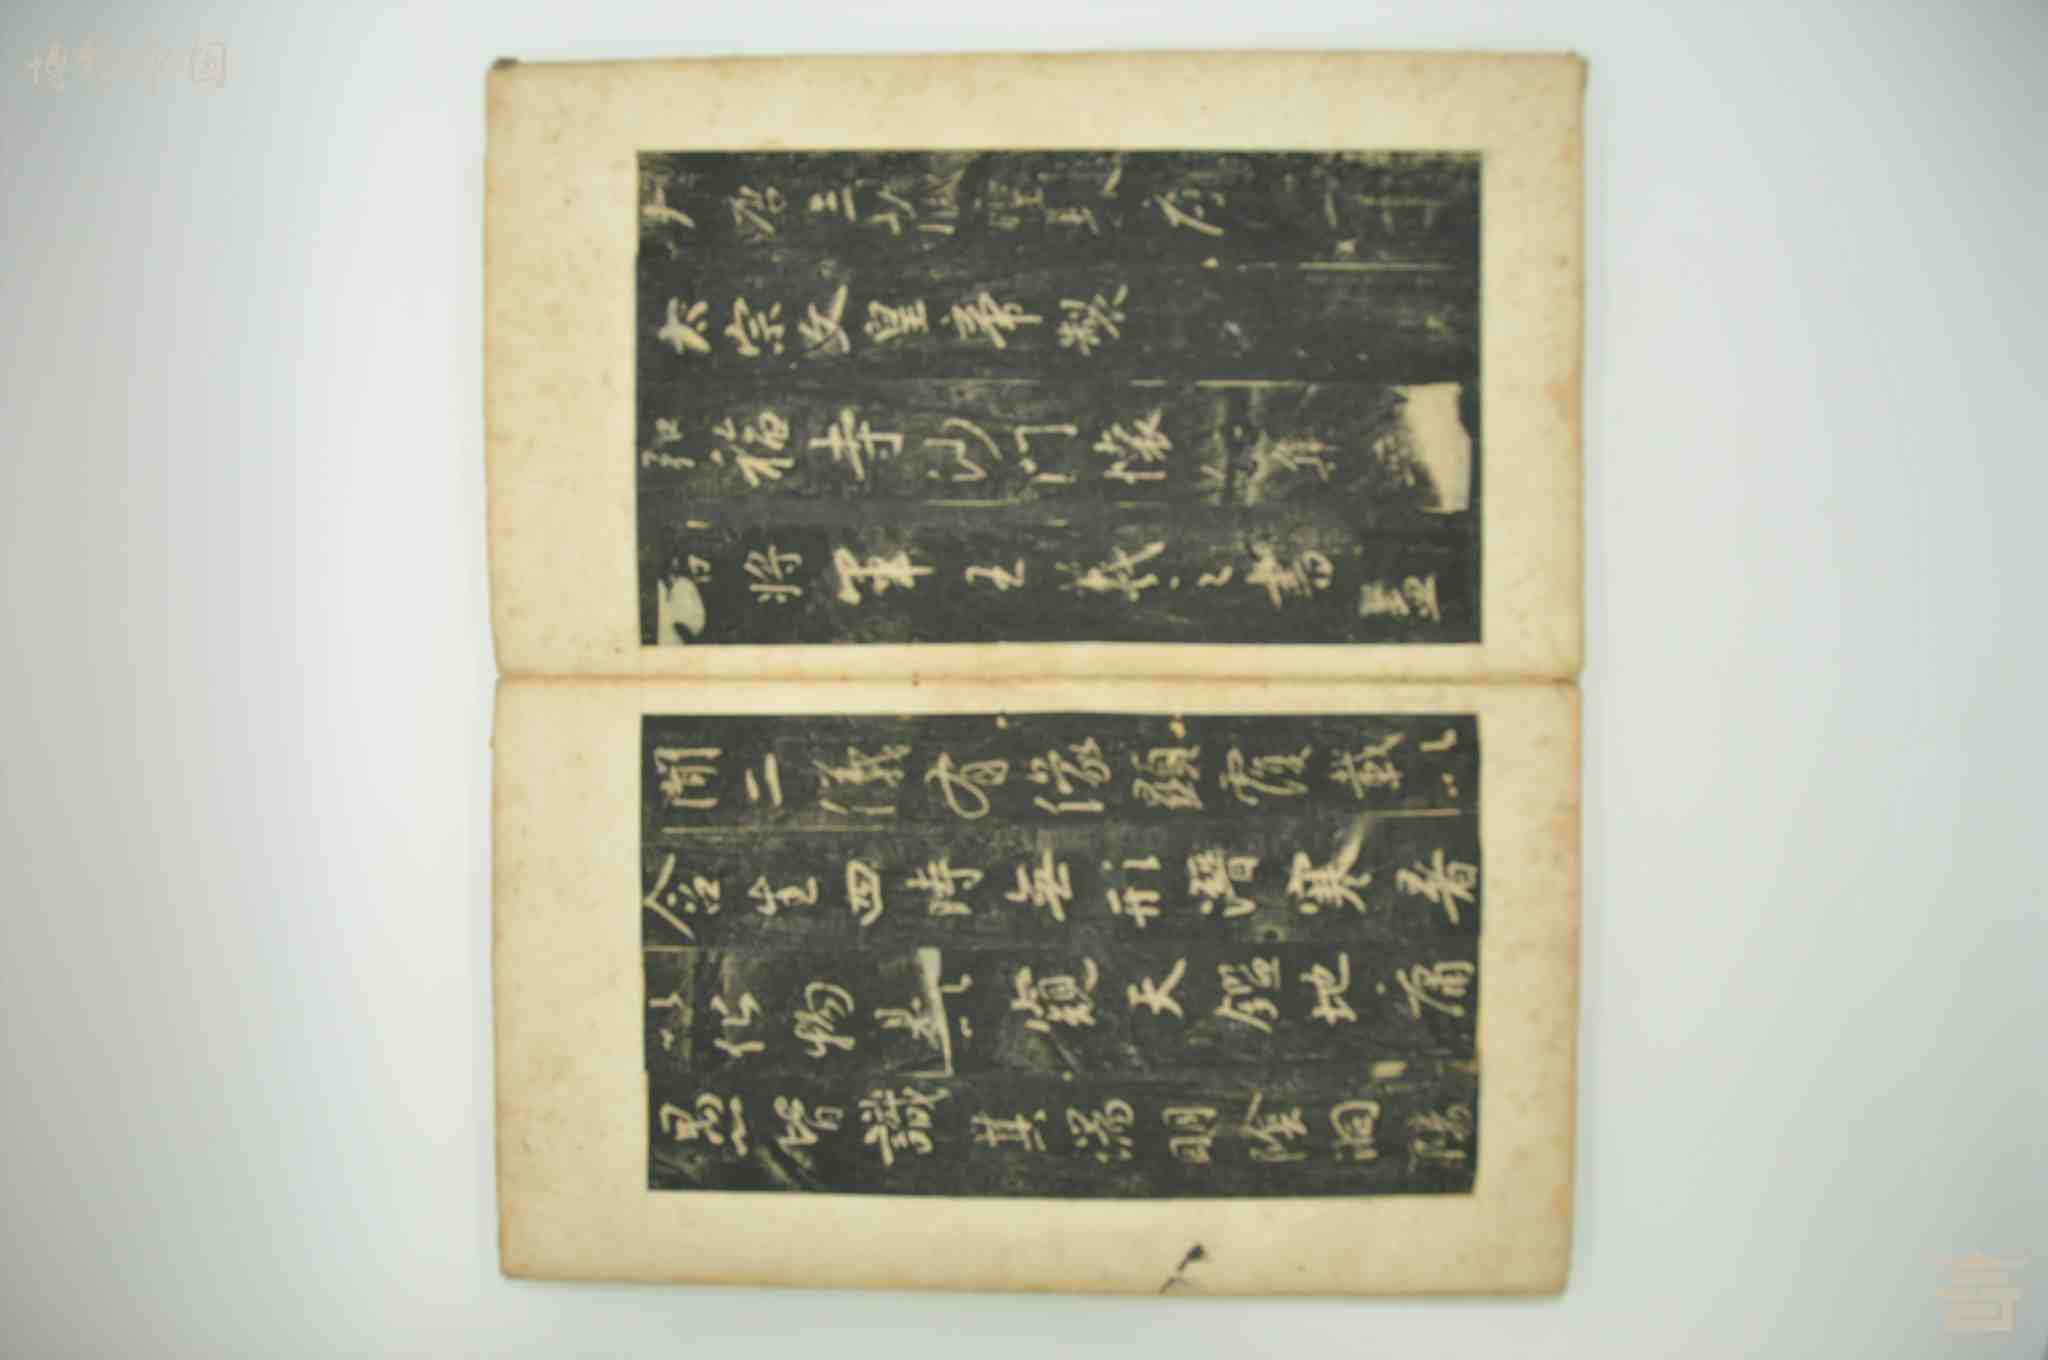 大唐三藏聖教序
太宗文皇帝製
弘福寺沙門懷仁集
右將軍王羲之書蓋
聞二儀有像顯覆載以
含生四時無形潛寒暑
以化物是以窺天鑑地庸
愚皆識其端明陰洞陽